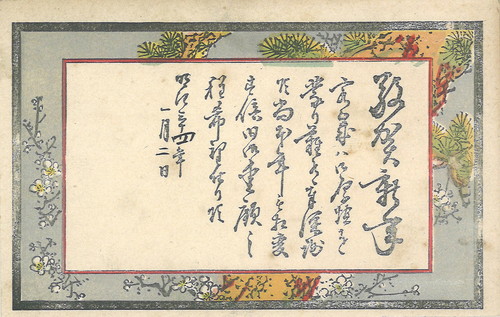 敬賀新年
客歳ハ御厚情を
蒙り難有奉深謝
候尚本年も相変
倍旧御愛顧之
程希望仕候
明治卅四年
一月二日